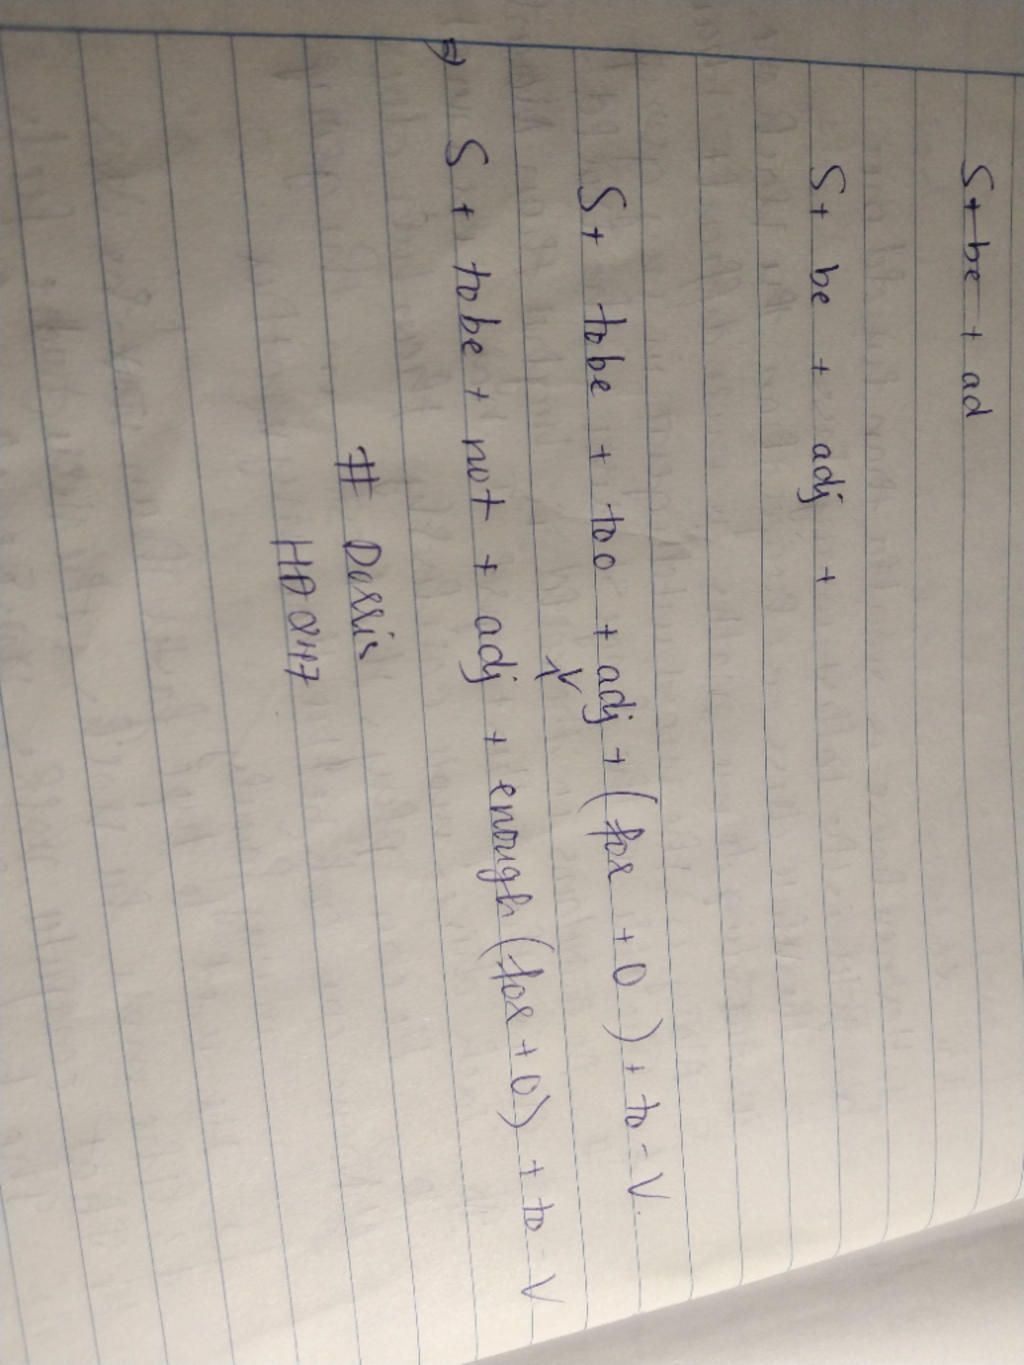 S + be + ad
S + be + adj +
S + to be + too + adj + (for + O) + to - V.
⇒ S + to be + not + adj + enough (for + O) + to - V
# Dorris